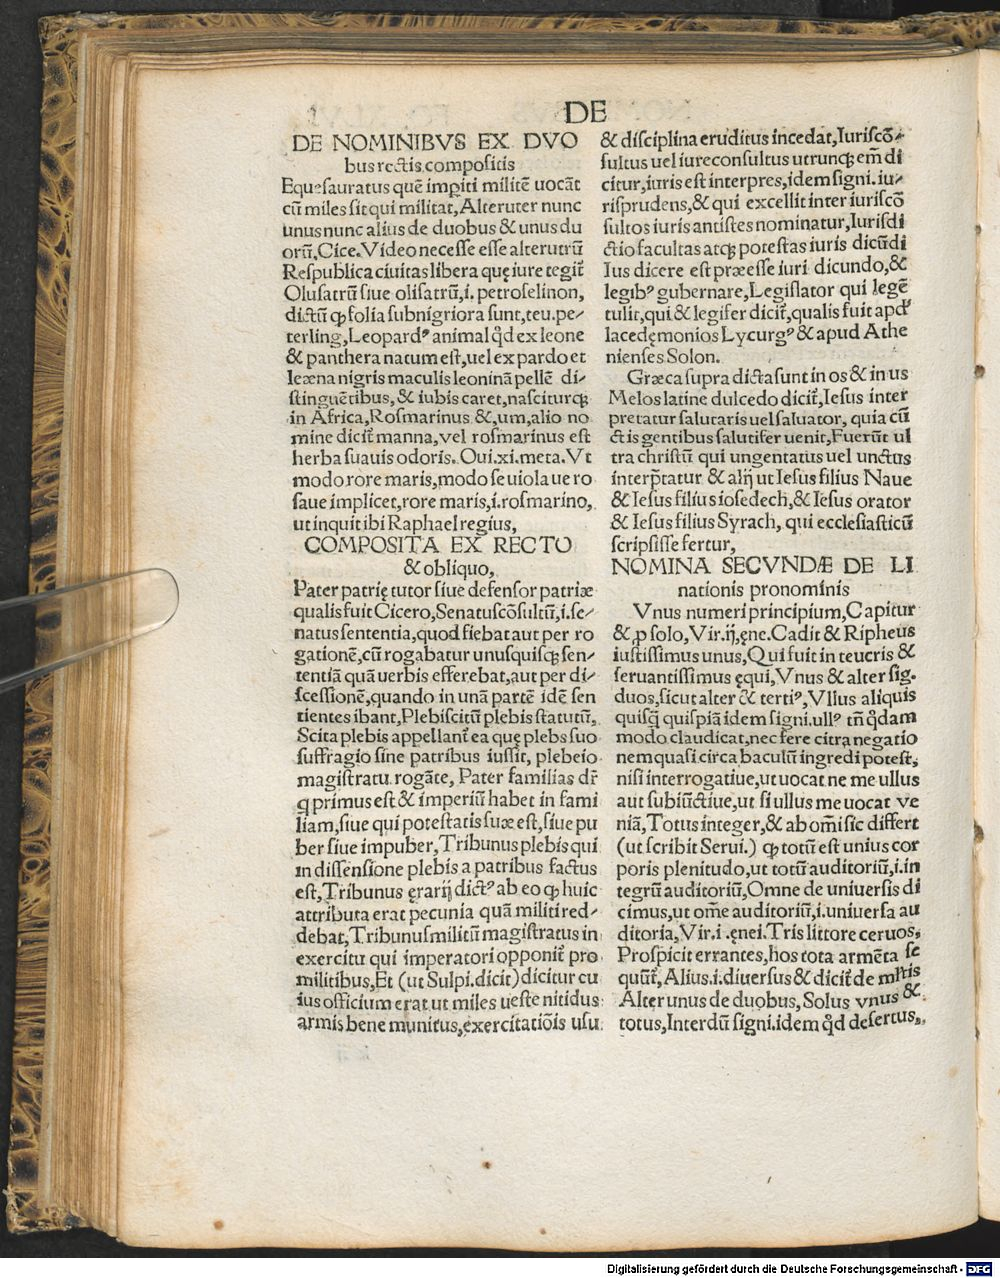 DE
DE NOMINIBVS EX DVO
bus rectis compositis
Eques auratus quē imꝑiti militē uocāt
cū miles sit qui militat, Alteruter nunc
unus nunc alius de duobus & unus du
orū, Cice. Video necesse esse alterutrū
Respublica ciuitas libera quę iure tegit̄
Olusatrū siue olisatrū, i. petroselinon,
dictū ꝙ folia subnigriora sunt, teu. pe⸗
terling, Leopardꝰ animal qd̄ ex leone
& panthera natum est, uel ex pardo et
leæna nigris maculis leoninā pellē di⸗
stinguētibus, & iubis caret, nasciturqꝫ
in Africa, Rosmarinus &, um, alio no
mine dicit̄ manna, vel rosmarinus est
herba suauis odoris. Oui. xi. meta. Vt
modo rore maris, modo se uiola ue ro
saue implicet, rore maris, i. rosmarino,
ut inquit ibi Raphael regius,
COMPOSITA EX RECTO
& obliquo,
Pater patrię tutor siue defensor patriæ
qualis fuit Cicero, Senatuscōsultū, i. se⸗
natus sententia, quod fiebat aut per ro
gationē, cū rogabatur unusquisqꝫ sen⸗
tentiā quā uerbis efferebat, aut per di⸗
scessionē, quando in unā partē idē sen
tientes ibant, Plebiscitū plebis statutū,
Scita plebis appellant̄ ea quę plebs suo
suffragio sine patribus iussit, plebeio
magistratu rogāte, Pater familias dr̄
q primus est & imperiū habet in fami
liam, siue qui potestatis suæ est, siue pu
ber siue impuber, Tribunus plebis qui
in dissensione plebis a patribus factus
est, Tribunus ęrarij dictꝰ ab eo ꝙ huic
attributa erat pecunia quā militi red⸗
debat, Tribunus militū magistratus in
exercitu qui imperatori opponit̄ pro
militibus, Et (ut Sulpi. dicit) dicitur cu
ius officium erat ut miles ueste nitidus
armis bene munitus, exercitatiōis usu
& disciplina eruditus incedat, Iuriscō⸗
sultus uel iureconsultus utrunqꝫ em̄ di
citur, iuris est interpres, idem signi. iu⸗
risprudens, & qui excellit inter iuriscō
sultos iuris antistes nominatur, Iurisdi
ctio facultas atqꝫ potestas iuris dicūdi
Ius dicere est præesse iuri dicundo, &
legibꝰ gubernare, Legislator qui legē
tulit, qui & legifer dicit̄, qualis fuit apd̕
lacedęmonios Lycurgꝰ & apud Athe
nienses Solon.
Græca supra dicta sunt in os & in us
Melos latine dulcedo dicit̄, Iesus inter
pretatur salutaris uel saluator, quia cū
ctis gentibus salutifer uenit, Fuerūt ul
tra christū qui ungentatus uel unctus
interp̄tatur & alij ut Iesus filius Naue
& Iesus filius iosedech, & Iesus orator
& Iesus filius Syrach, qui ecclesiasticū
scripsisse fertur,
NOMINA SECVNDÆ DE LI
nationis pronominis
Vnus numeri principium, Capitur
& ꝓ solo, Vir. ij, ęne. Cadit & Ripheus
iustissimus unus, Qui fuit in teucris &
seruantissimus ęqui, Vnus & alter sig.
duos, sicut alter & tertiꝰ, Vllus aliquis
quisq̄ quispiā idem signi. ullꝰ tn̄ qd̄am
modo claudicat, nec fere citra negatio
nem quasi circa baculū ingredi potest,
nisi interrogatiue, ut uocat ne me ullus
aut subiūctiue, ut si ullus me uocat ve
niā, Totus integer, & ab om̄i sic differt
(ut scribit Serui.) ꝙ totū est unius cor
poris plenitudo, ut totū auditoriū, i. in
tegrū auditoriū, Omne de uniuersis di
cimus, ut om̄e auditoriū, i. uniuersa au
ditoria, Vir. i. ęnei. Tris littore ceruos,
Prospicit errantes, hos tota armēta se
quūt̄, Alius. i. diuersus & dicit̄ de ml̄tis
Alter unus de duobus, Solus vnus &
totus, Interdū signi. idem qd̄ desertus,
Digitalisierung gefördert durch die Deutsche Forschungsgemeinschaft - DFG